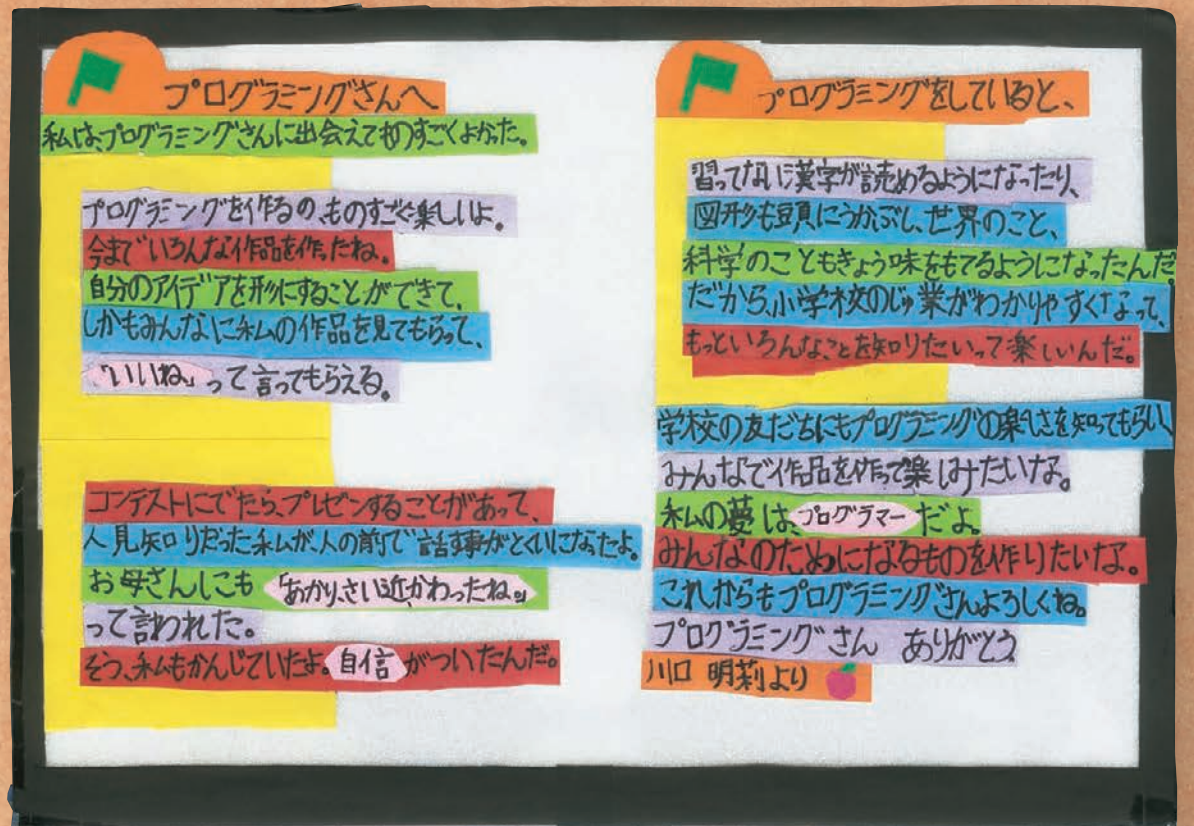 プログラミングさんへ
私は、プログラミングさんに出会えてものすごくよかった。
プログラミングを作るの、ものすごく楽しいよ。
今までいろんな作品を作ったね。
自分のアイデアを形にすることができて、
しかもみんなに私の作品を見てもらって、
「いいね」って言ってもらえる。
コンテストにでたら、プレゼンすることがあって、
人見知りだった私が、人の前で話す事がとくいになったよ。
お母さんにも「あかり、さい近、かわったね。」
って言われた。
そう、私もかんじていたよ。自信がついたんだ。
プログラミングをしていると、
習ってない漢字が読めるようになったり、
図形も頭にうかぶし、世界のこと、
科学のこともきょう味をもてるようになったんだ
だから、小学校のじゅ業がわかりやすくなって、
もっといろんなことを知りたいって楽しいんだ。
学校の友だちにもプログラミングの楽しさを知ってもらい、
みんなで作品を作って楽しみたいな。
私の夢は、プログラマーだよ。
みんなのためになるものを作りたいな。
これからもプログラミングさんよろしくね。
プログラミングさん ありがとう
川口 明莉より